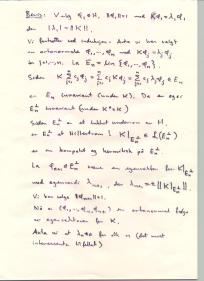 Bevis: Vælg φ₁ ∈ H, ‖φ₁‖=1 med Kφ₁ = λ₁φ₁
der |λ₁| = ‖K‖.
Vi fortsætter ved induktion. Anta vi har valgt
en ortonormale φ₁, ..., φₙ med Kφⱼ = λⱼφⱼ
for j=1,...,n. La Eₙ = lin {φ₁, ..., φₙ}.
Siden K Σ cⱼφⱼ = Σ cⱼKφⱼ = Σ cⱼλⱼφⱼ ∈ Eₙ
er Eₙ invariant under K. Da er også
Eₙ^⊥ invariant under K* = K
Siden Eₙ^⊥ er et lukket underrom av H,
er Eₙ^⊥ et Hilbertrom. K|Eₙ^⊥ ∈ L(Eₙ^⊥)
er en kompakt og hermitisk på Eₙ^⊥
La φₙ₊₁ ∈ Eₙ^⊥ være en egenvektor for K|Eₙ^⊥
med egenverdi λₙ₊₁, der λₙ₊₁ = ±‖K|Eₙ^⊥‖.
Vi kan velge ‖φₙ₊₁‖=1.
Nå er {φ₁, ..., φₙ, φₙ₊₁} en ortonormal følge
av egenvektorer for K.
Anta nå at λₙ≠0 for alle n (det mest
interessante tilfellet)